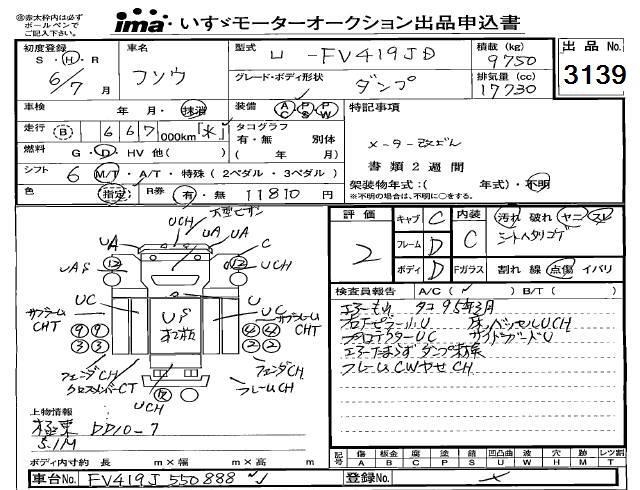 ※赤太枠内は必ずボールペンでご記入下さい。
ima いすゞモーターオークション出品申込書
初度登録 S・H・R 6/7月
車名 フソウ
型式 U-FV419JD
積載 (kg) 9750
出品No. 3139
グレード・ボディ形状 ダンプ
排気量 (cc) 17730
車検 年 月・抹消
装備 AC PS PW
特記事項
走行 B 667,000km「米」
タコグラフ 有・無 別体 ( 年 月)
メーター改ざん
燃料 G・D・HV 他( )
書類2週間
シフト 6 M/T・A/T・特殊(2ペダル・3ペダル)
架装物年式:( 年式)・不明
※不明の場合は、不明に○をする。
色 指定 R券 有・無 11810円
評価 2
キャブ C
フレーム D
ボディ D
内装 C
汚れ 破れ ヤニ スレ
シートヘタリコゲ
Fガラス 割れ 線 点傷 イバリ
検査員報告 A/C( ) B/T( )
タコ95年3月
サイドガードU
フレームCWヤセCH
UCH
UA
UA
UA
C
12
12
UCH
UC
U
UC
サブフレームCHT
サブフレームCHT
9 9
3 3
4 4
2 2
フェンダCH
クロスメンバーCT
フェンダCH
フレームCH
UCH
上物情報
極東 DD10-7
5.1M
ボディ内寸約 長 m×幅 m×高 m
記号 傷A 板金B 腐C 塗P 錆S 凹凸曲U 波W 穴H 跡M レツ割T
車台No. FV419J 550888
登録No.